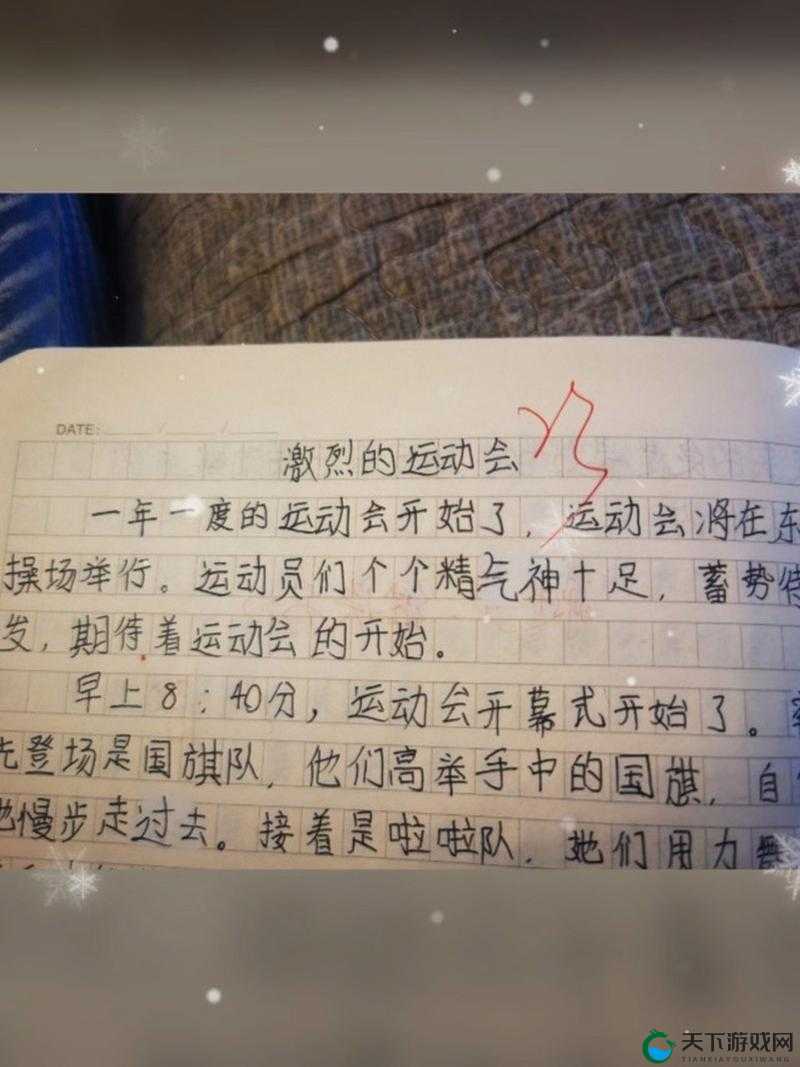 DATE: / /
激烈的运动会
一年一度的运动会开始了，运动会将在东
操场举行。运动员们个个精气神十足，蓄势待
发，期待着运动会的开始。
早上8:40分，运动会开幕式开始了。率
先登场是国旗队，他们高举手中的国旗，自
地慢步走过去。接着是啦啦队，她们用力舞
天下游戏网
TIANXIAYOUXIWANG